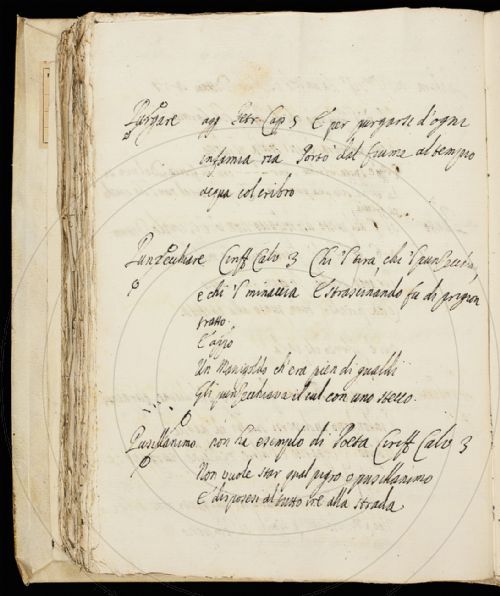 Purgare agg Petr Cap 5 E per purgarsi d'ogne
infamia ria Portò dal fiume al tempio
acqua col cribro
Punzecchiare Ciriff Calv 3 Chi 'l tira, chi 'l punzecchia,
e chi 'l minaccia E strascinando fu di prigion
tratto.
E appo
Un Manigoldo ch'era pien di
Gli punzecchiava il cul con uno stecco.
Pusillanimo non ha esemplo di Poeta Ciriff Calv 3
Non vuole star qual pigro o pusillanimo
E dispose al tutto ire alla strada